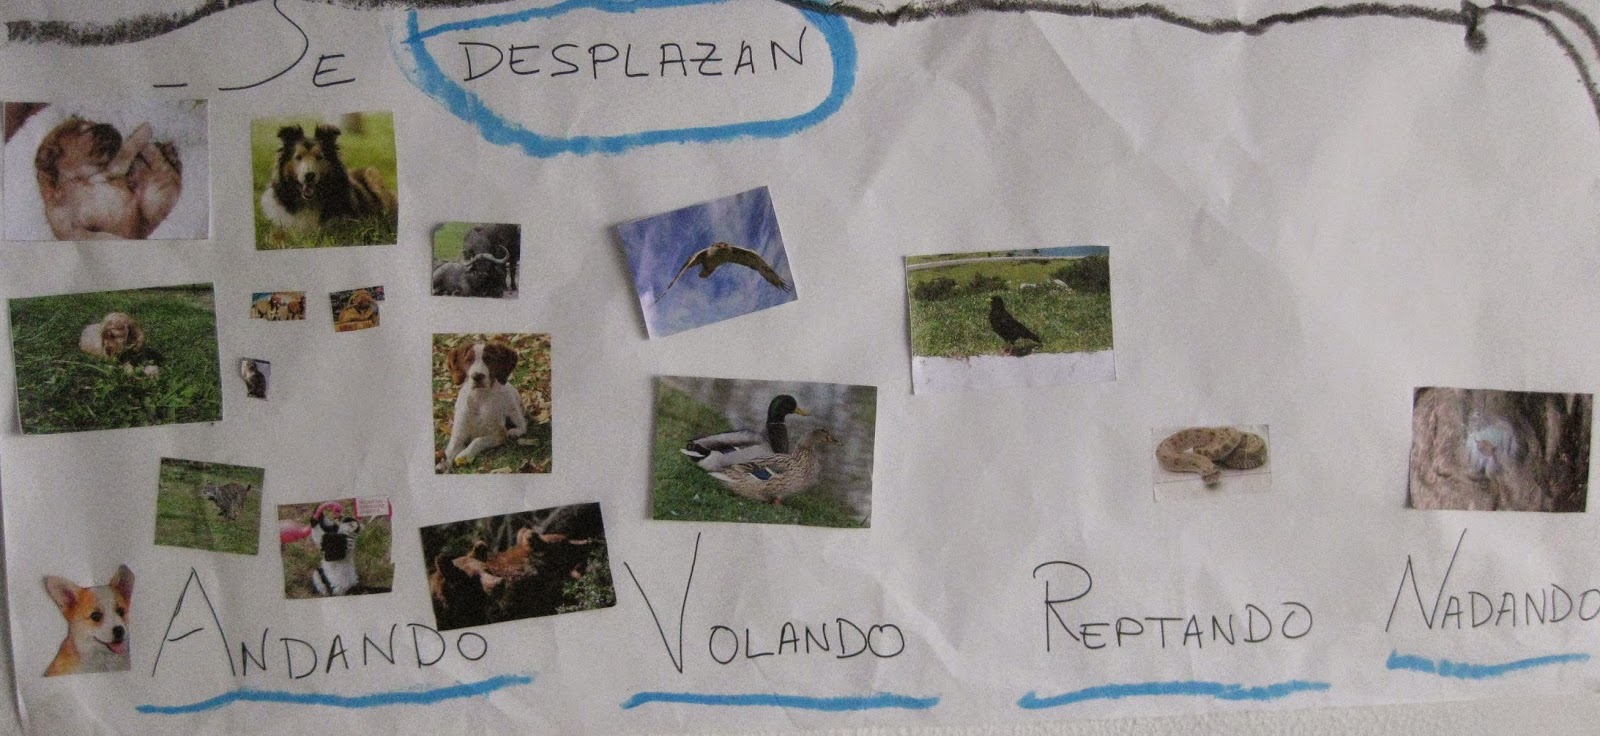 _ SE DESPLAZAN
ANDANDO VOLANDO REPTANDO NADANDO